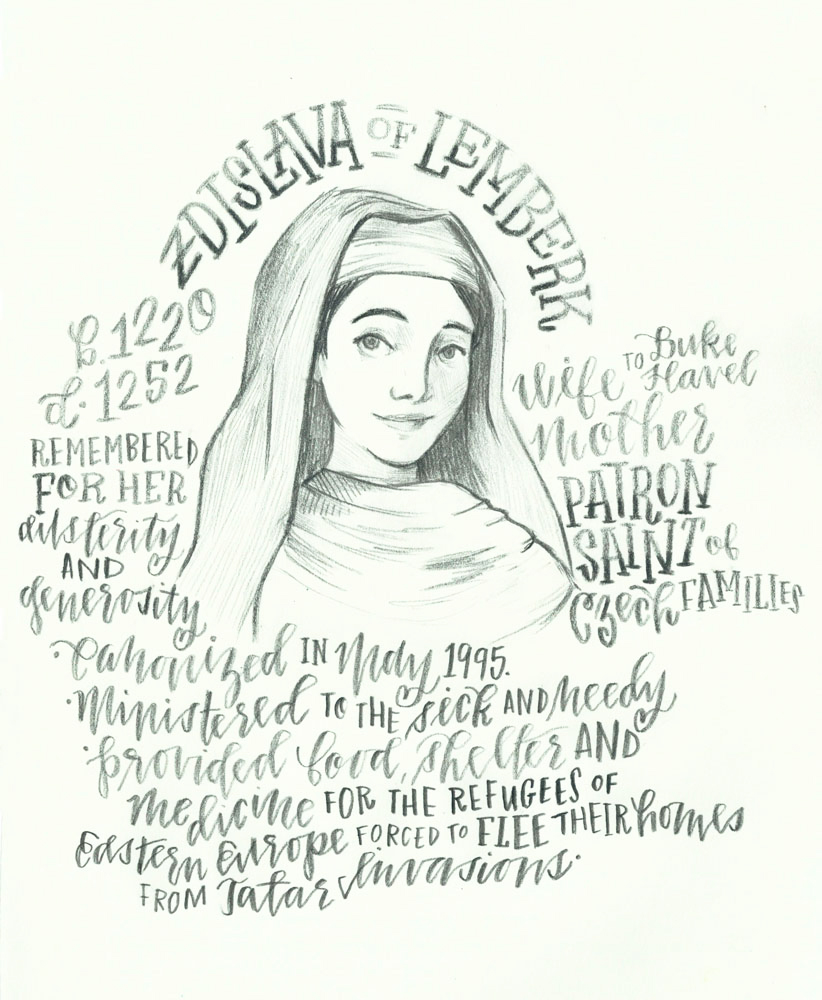 ZDISLAVA OF LEMBERK
b. 1220
d. 1252
REMEMBERED
FOR HER
austerity
AND
generosity
Wife TO Buke Havel
Mother
PATRON
SAINT of
Czech FAMILIES
·Canonized IN May 1995.
·Ministered TO THE sick AND needy
·provided food, shelter AND
medicine FOR THE REFUGEES OF
Eastern Europe FORCED TO FLEE THEIR homes
FROM Tatar Invasions.